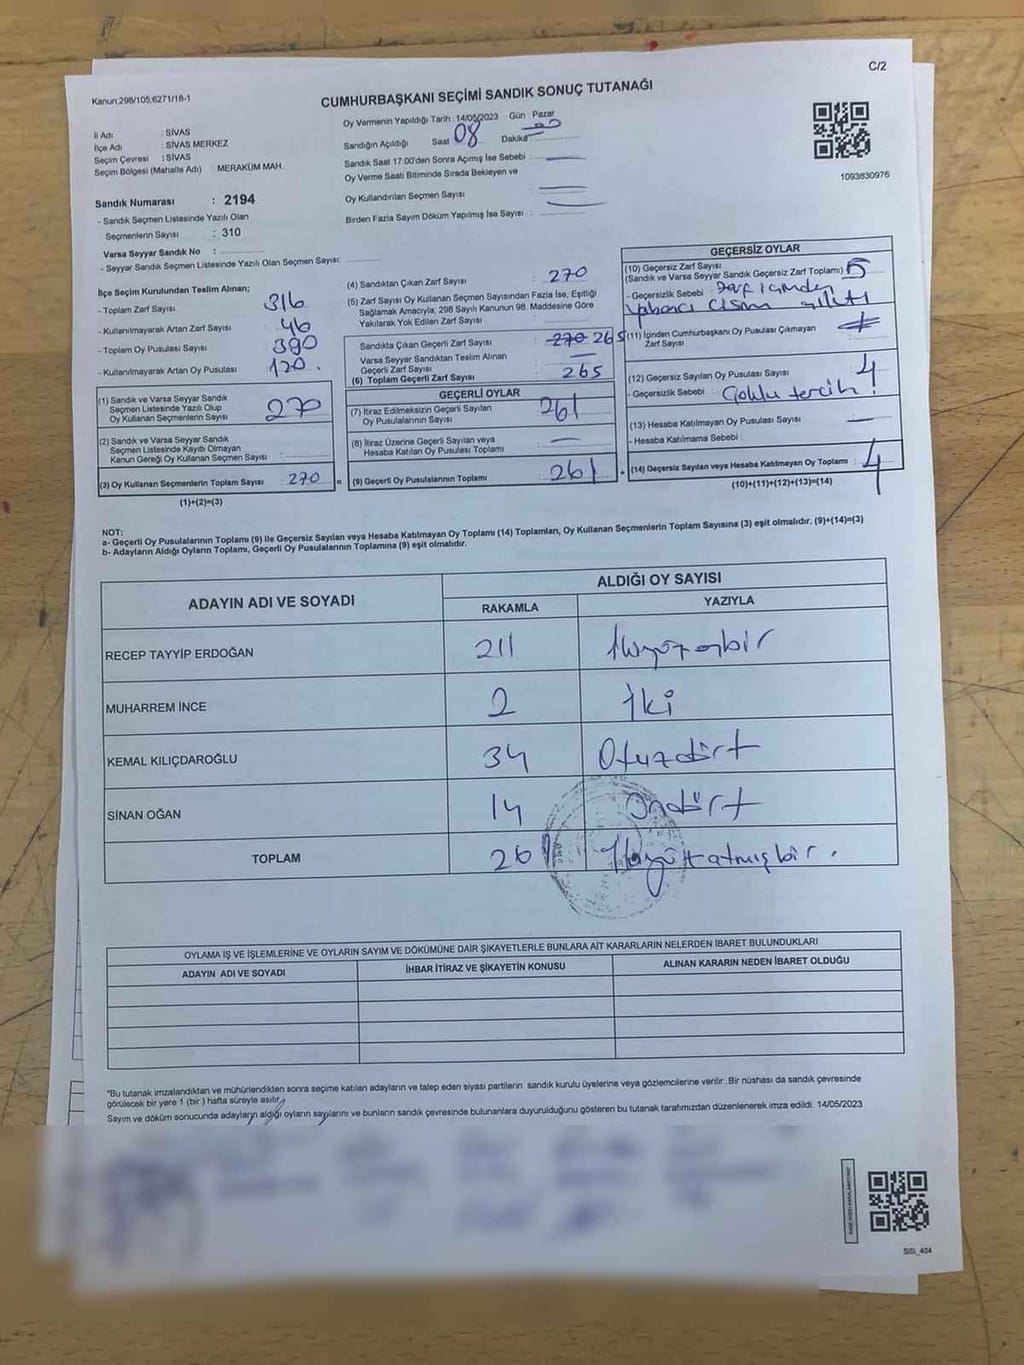 C/2
Kanun:298/105;6271/18-1
CUMHURBAŞKANI SEÇİMİ SANDIK SONUÇ TUTANAĞI
İl Adı : SİVAS
İlçe Adı : SİVAS MERKEZ
Seçim Çevresi : SİVAS
Seçim Bölgesi (Mahalle Adı) : MERAKÜM MAH.
Sandık Numarası : 2194
- Sandık Seçmen Listesinde Yazılı Olan
Seçmenlerin Sayısı : 310
Varsa Seyyar Sandık No :
- Seyyar Sandık Seçmen Listesinde Yazılı Olan Seçmen Sayısı:
Oy Vermenin Yapıldığı Tarih : 14/05/2023 Gün : Pazar
Sandığın Açıldığı Saat 08 Dakika
Sandık Saat 17:00'den Sonra Açımış İse Sebebi :
Oy Verme Saati Bitiminde Sırada Bekleyen ve
Oy Kullandırılan Seçmen Sayısı :
Birden Fazla Sayım Döküm Yapılmış İse Sayısı :
1093830976
İlçe Seçim Kurulundan Teslim Alınan;
- Toplam Zarf Sayısı : 316
- Kullanılmayarak Artan Zarf Sayısı : 46
- Toplam Oy Pusulası Sayısı : 390
- Kullanılmayarak Artan Oy Pusulası : 120.
(1) Sandık ve Varsa Seyyar Sandık
Seçmen Listesinde Yazılı Olup
Oy Kullanan Seçmenlerin Sayısı : 270
(2) Sandık ve Varsa Seyyar Sandık
Seçmen Listesinde Kayıtlı Olmayan
Kanun Gereği Oy Kullanan Seçmen Sayısı :
(3) Oy Kullanan Seçmenlerin Toplam Sayısı : 270 =
(1)+(2)=(3)
(4) Sandıktan Çıkan Zarf Sayısı : 270
(5) Zarf Sayısı Oy Kullanan Seçmen Sayısından Fazla İse, Eşitliği
Sağlamak Amacıyla; 298 Sayılı Kanunun 98. Maddesine Göre
Yakılarak Yok Edilen Zarf Sayısı :
Sandıkta Çıkan Geçerli Zarf Sayısı : 270 265
Varsa Seyyar Sandıktan Teslim Alınan
Geçerli Zarf Sayısı :
(6) Toplam Geçerli Zarf Sayısı : 265
GEÇERLİ OYLAR
(7) İtiraz Edilmeksizin Geçerli Sayılan
Oy Pusulalarının Sayısı : 261
(8) İtiraz Üzerine Geçerli Sayılan veya
Hesaba Katılan Oy Pusulası Toplamı :
(9) Geçerli Oy Pusulalarının Toplamı : 261 +
GEÇERSİZ OYLAR
(10) Geçersiz Zarf Sayısı
(Sandık ve Varsa Seyyar Sandık Geçersiz Zarf Toplamı) : 5
- Geçersizlik Sebebi : Zarf içinden
Yabancı cisim
(11) İçinden Cumhurbaşkanı Oy Pusulası Çıkmayan
Zarf Sayısı
(12) Geçersiz Sayılan Oy Pusulası Sayısı : 4
- Geçersizlik Sebebi : Çoklu tercih
(13) Hesaba Katılmayan Oy Pusulası Sayısı :
- Hesaba Katılmama Sebebi :
(14) Geçersiz Sayılan veya Hesaba Katılmayan Oy Toplamı : 4
(10)+(11)+(12)+(13)=(14)
NOT:
a- Geçerli Oy Pusulalarının Toplamı (9) ile Geçersiz Sayılan veya Hesaba Katılmayan Oy Toplamı (14) Toplamları, Oy Kullanan Seçmenlerin Toplam Sayısına (3) eşit olmalıdır. (9)+(14)=(3)
b- Adayların Aldığı Oyların Toplamı, Geçerli Oy Pusulalarının Toplamına (9) eşit olmalıdır.
ADAYIN ADI VE SOYADI
ALDIĞI OY SAYISI
RAKAMLA YAZIYLA
RECEP TAYYİP ERDOĞAN 211 İkiyüzonbir
MUHARREM İNCE 2 İki
KEMAL KILIÇDAROĞLU 34 Otuzdört
SİNAN OĞAN 14 Ondört
TOPLAM 261 İkiyüzaltmışbir.
OYLAMA İŞ VE İŞLEMLERİNE VE OYLARIN SAYIM VE DÖKÜMÜNE DAİR ŞİKAYETLERLE BUNLARA AİT KARARLARIN NELERDEN İBARET BULUNDUKLARI
ADAYIN ADI VE SOYADI İHBAR İTİRAZ VE ŞİKAYETİN KONUSU ALINAN KARARIN NEDEN İBARET OLDUĞU
*Bu tutanak imzalandıktan ve mühürlendikten sonra seçime katılan adayların ve talep eden siyasi partilerin sandık kurulu üyelerine veya gözlemcilerine verilir .Bir nüshası da sandık çevresinde
görülecek bir yere 1 (bir ) hafta süreyle asılır.
Sayım ve döküm sonucunda adayların aldığı oyların sayılarını ve bunların sandık çevresinde bulunanlara duyurulduğunu gösteren bu tutanak tarafımızdan düzenlenerek imza edildi. 14/05/2023
SSİ_404